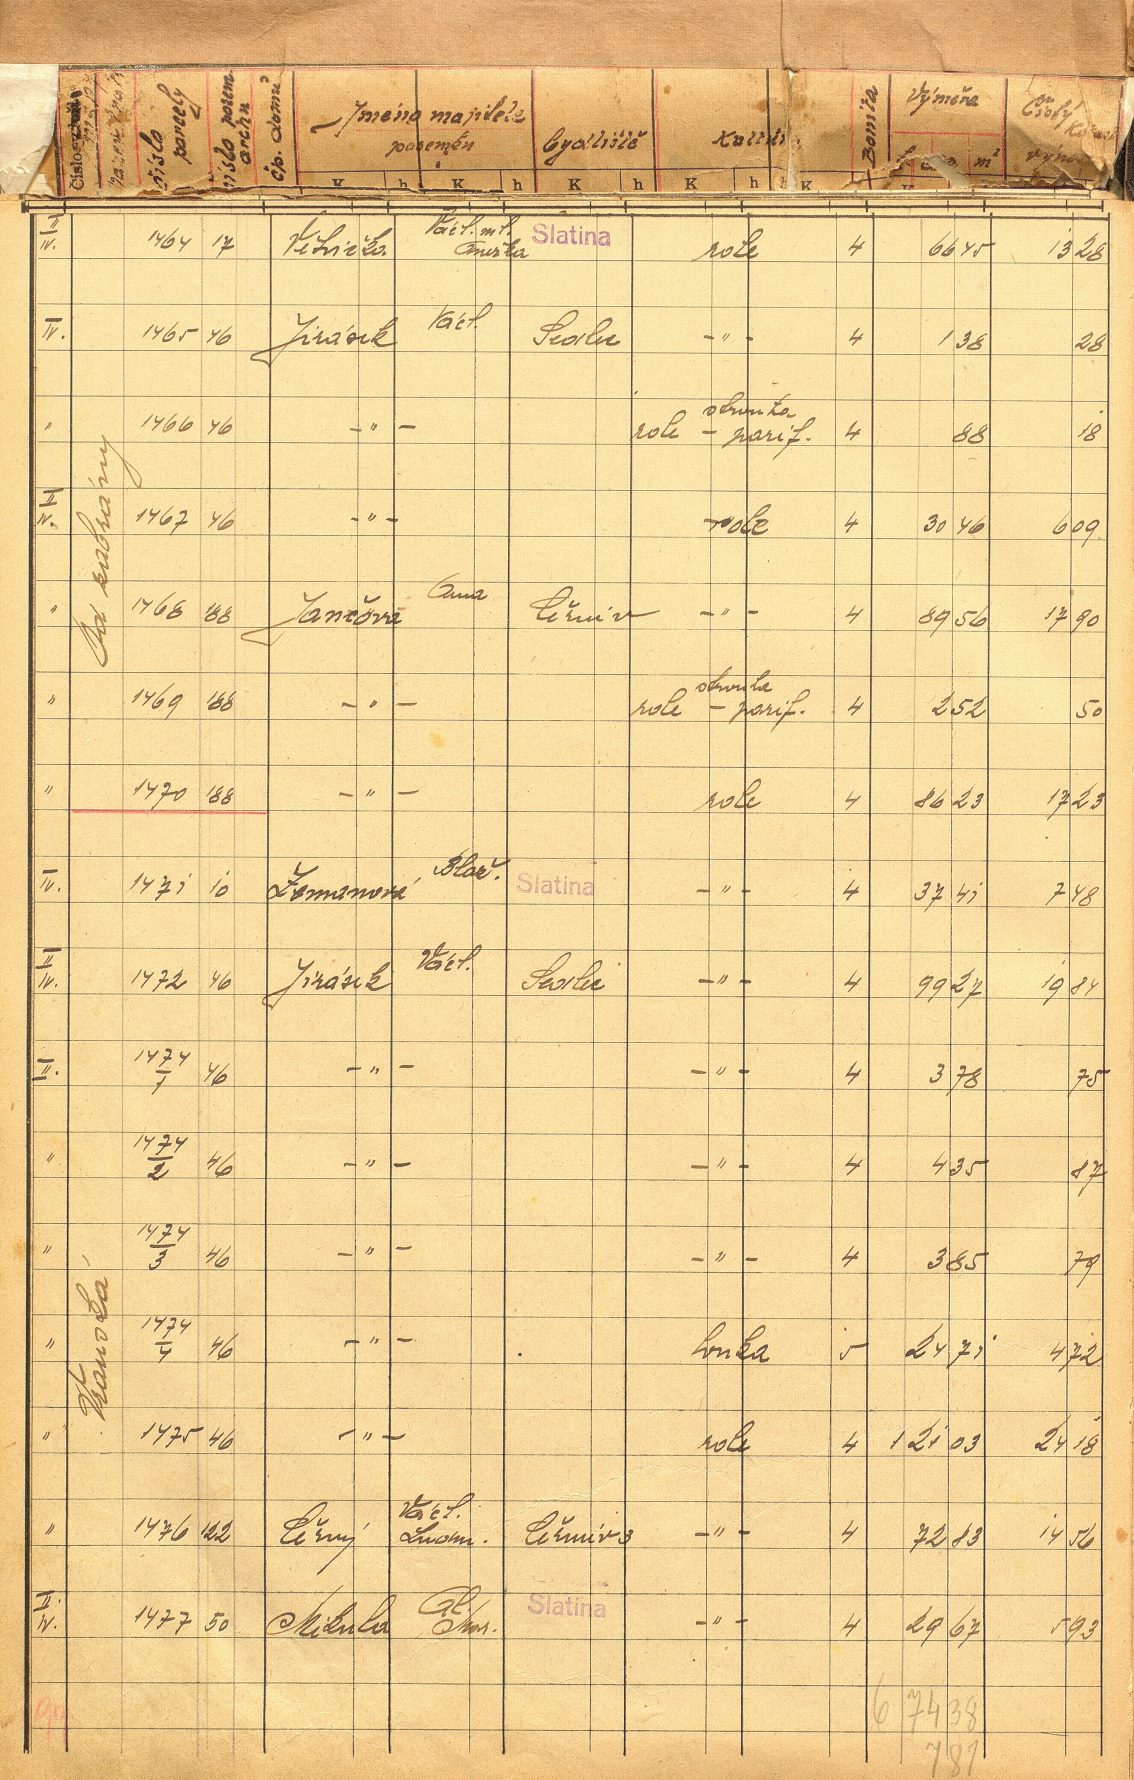 číslo parcely
číslo pozem. archu
čp. domu
Jméno majitele pozemku
Bydliště
Bonita
Výměra
m²
Čistý
K h K h K h K h K
II IV. 1464 17 Větvička Václ. ml. Anežka Slatina role 4 66 45 13 28
IV. 1465 46 Jirásek Václ. Sedlec -"- 4 1 38 28
" 1466 46 -"- role - parif. 4 88 18
II IV. 1467 46 -"- role 4 30 46 6 09
" 1468 188 Jančová Anna -"- 4 89 56 17 90
" 1469 188 -"- role - parif. 4 2 52 50
" 1470 188 -"- role 4 86 23 17 23
IV. 1471 10 Zemanová Blaž. Slatina -"- 4 37 41 7 48
II IV. 1472 46 Jirásek Václ. Sedlec -"- 4 99 27 19 84
II. 1474/1 46 -"- -"- 4 3 78 75
" 1474/2 46 -"- -"- 4 4 35 87
" 1474/3 46 -"- -"- 4 3 85 79
" 1474/4 46 -"- louka 5 24 71 4 72
" 1475 46 -"- role 4 1 21 03 24 18
" 1476 122 Černý Václ. Ludm. -"- 4 72 83 14 56
II. IV. 1477 50 Mikula Slatina -"- 4 29 67 5 93
6 74 38
781